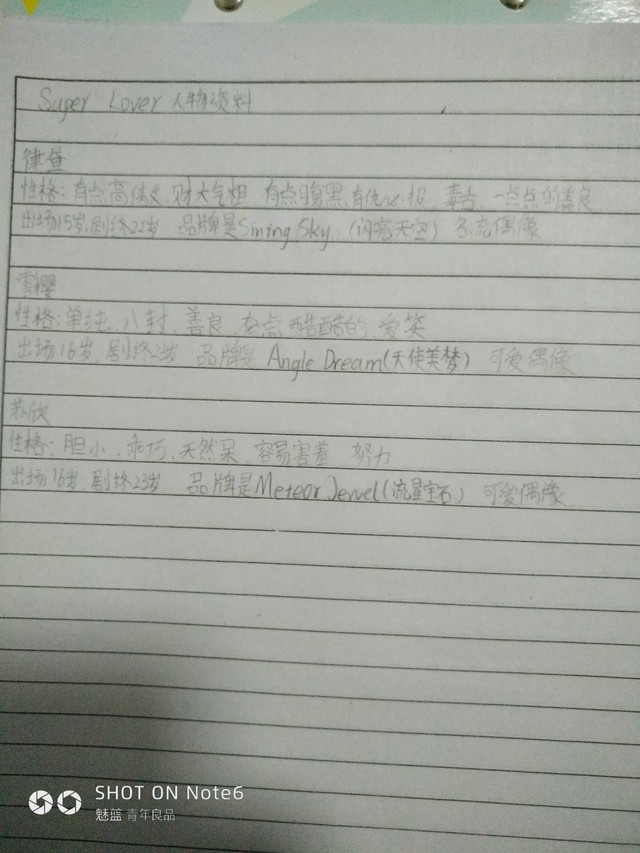 Super Lover 人物资料
律
性格：有点高傲、财大气粗 有点腹黑、有仇必报、毒舌、一点点的善良
出场15岁，剧终22岁 品牌是Sining Sky（闪亮天空）名流偶像
雪樱
性格：单纯、八封、善良、有点酷酷的、爱笑
出场16岁，剧终23岁 品牌是 Angle Dream（天使美梦） 可爱偶像
苏欣
性格：胆小、乖巧、天然呆、容易害羞 努力
出场16岁，剧终23岁 品牌是Meteor Jewel（流星宝石） 可爱偶像
SHOT ON Note6
魅蓝 青年良品